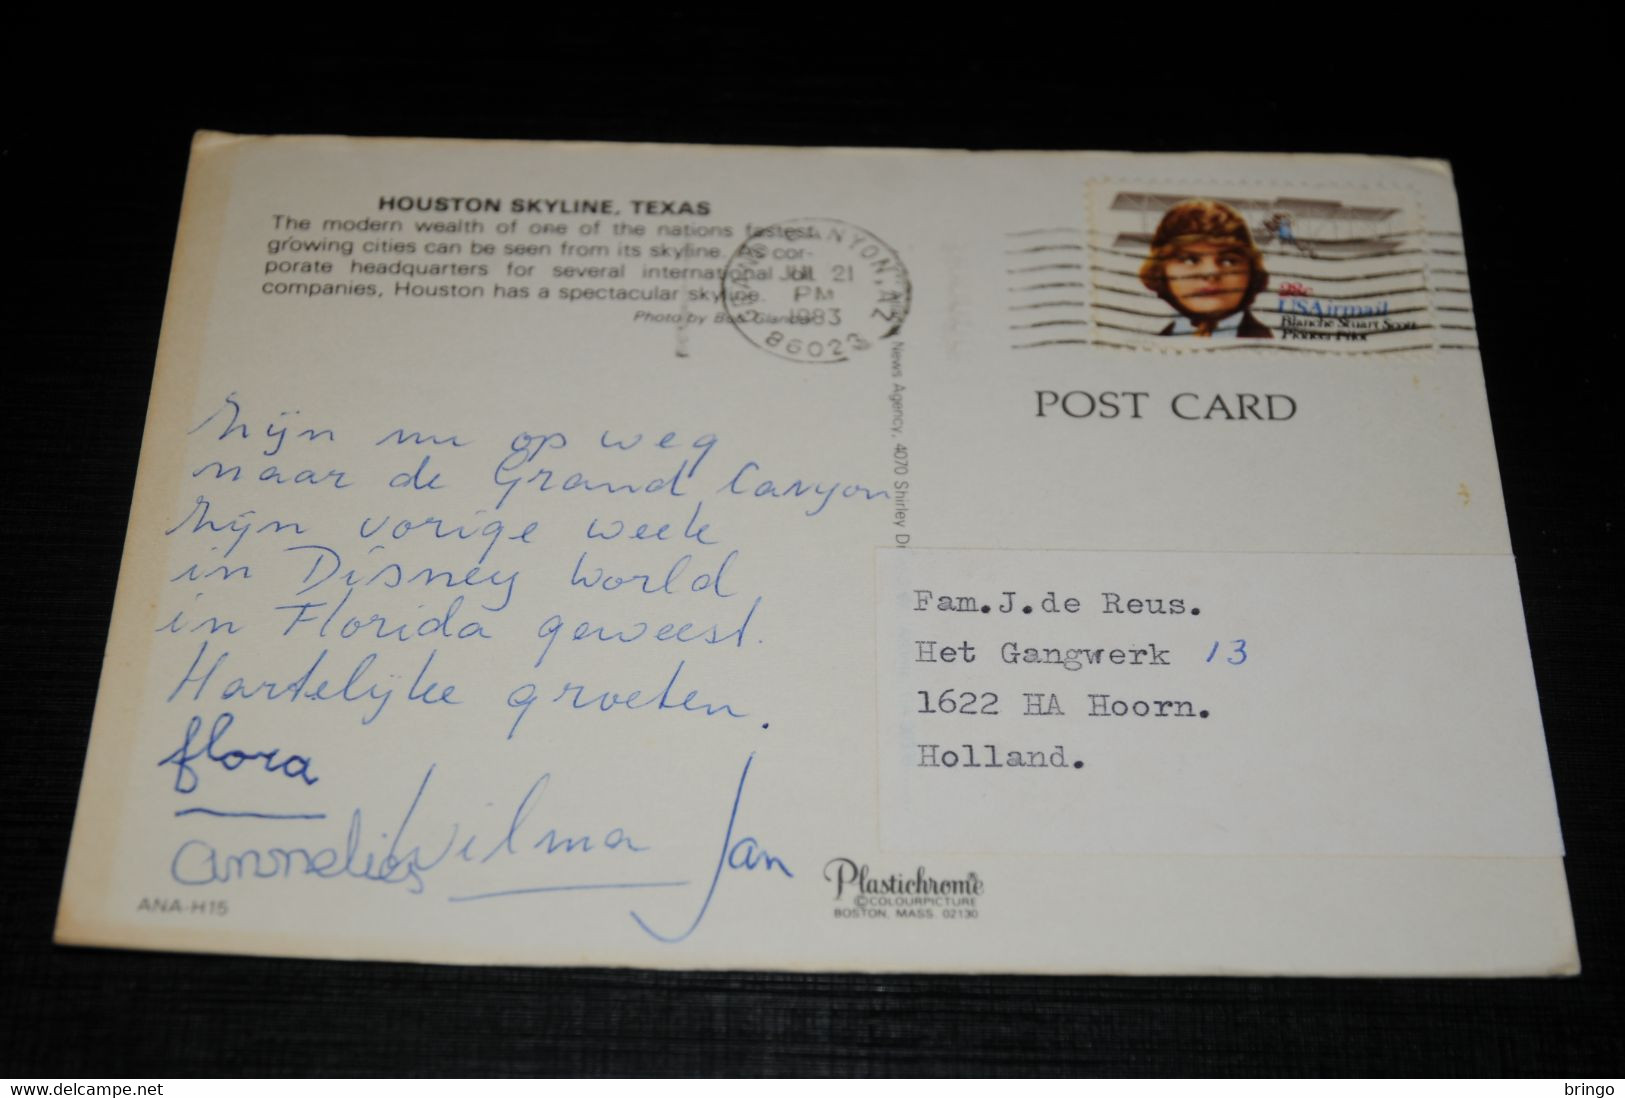 HOUSTON SKYLINE, TEXAS
The modern wealth of one of the nations fastest
growing cities can be seen from its skyline. As cor-
porate headquarters for several international oil
companies, Houston has a spectacular skyline.
Photo by Bob Glander
GRAND CANYON, AZ
JUL 21
PM
1983
86023
28c
USAirmail
Blanche Stuart Scott
Pioneer Pilot
POST CARD
News Agency, 4070 Shirley Dr
Zijn nu op weg
naar de Grand Canyon
Zijn vorige week
in Disney World
in Florida geweest.
Hartelijke groeten.
flora
annelies Wilma Jan
Fam.J.de Reus.
Het Gangwerk 13
1622 HA Hoorn.
Holland.
Plastichrome
©COLOURPICTURE
BOSTON, MASS. 02130
ANA-H15
www.delcampe.net
bringo